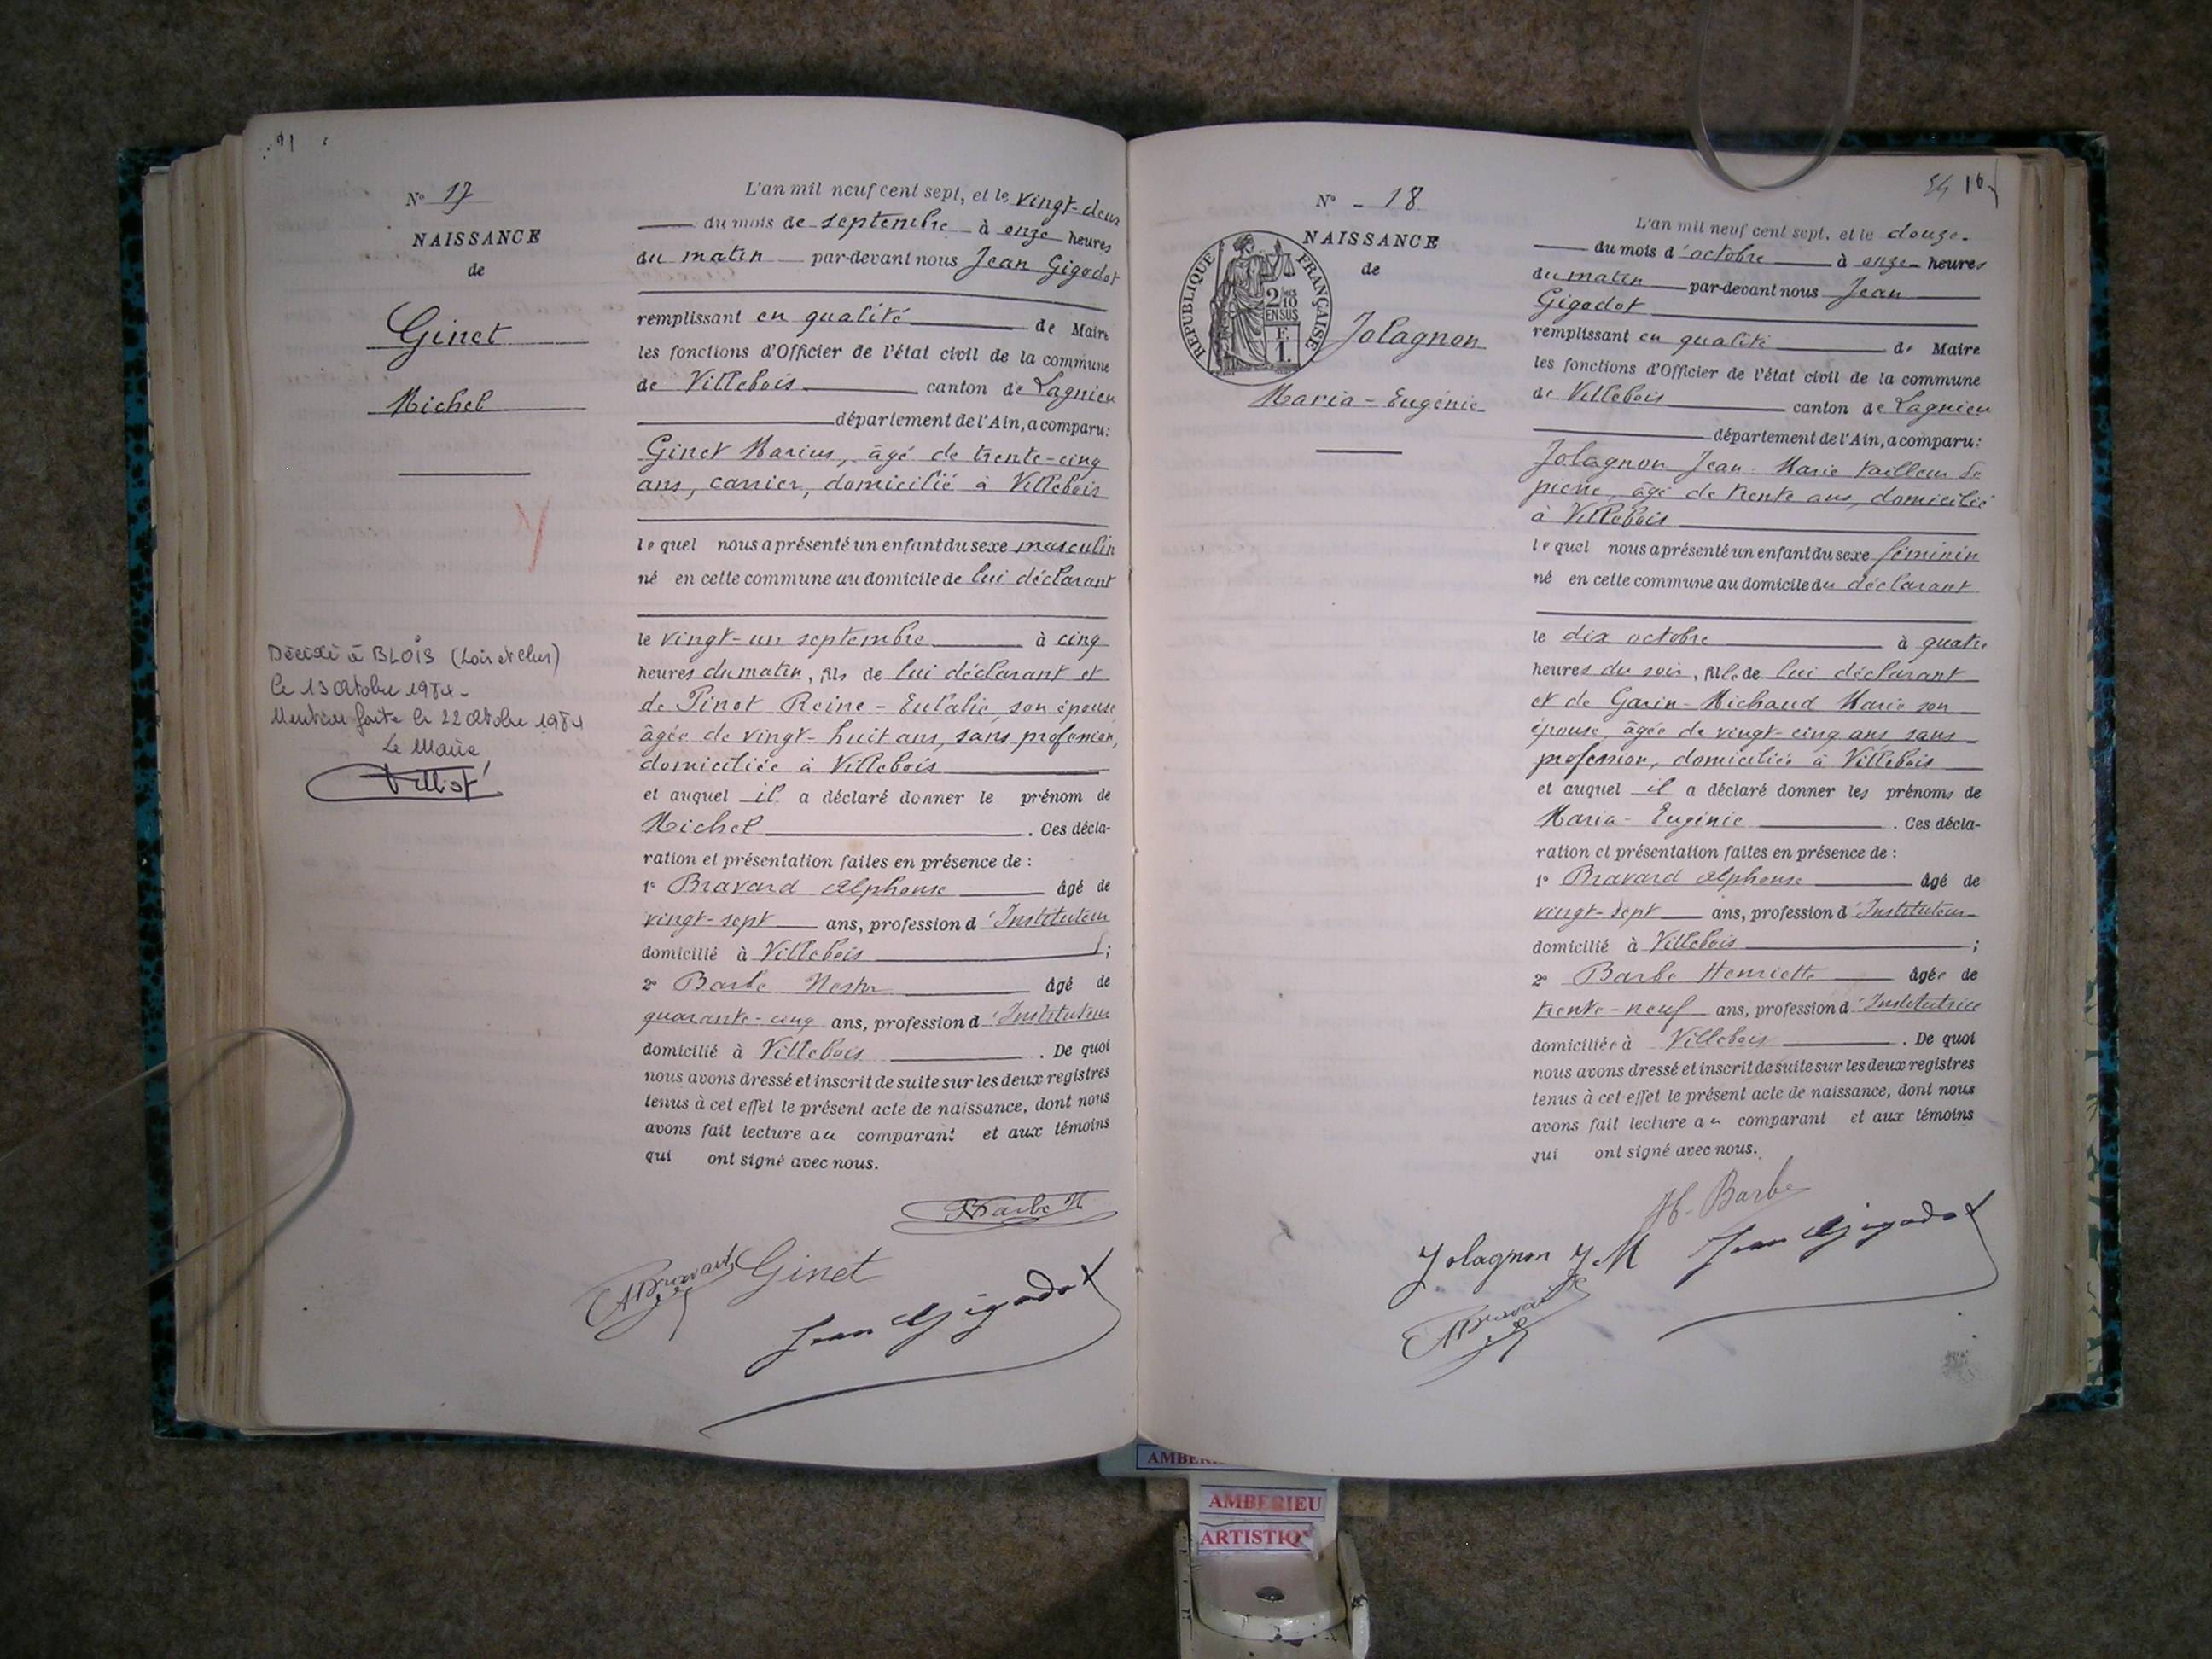 N° 17
NAISSANCE
de
Ginet
Michel
Décédé à BLOIS (Loir et Cher)
le 13 Octobre 1984-
Mention faite le 22 Octobre 1984
Le Maire,
L'an mil neuf cent sept, et le vingt-deux
du mois de septembre à onze heures
du matin par-devant nous Jean Gigodot
remplissant en qualité de Maire
les fonctions d'Officier de l'état civil de la commune
de Villebois canton de Lagnieu
département de l'Ain, a comparu:
Ginet Marius, âgé de trente-cinq
ans, carrier, domicilié à Villebois
lequel nous a présenté un enfant du sexe masculin
né en cette commune au domicile de lui déclarant
le vingt-un septembre à cinq
heures du matin, fils de lui déclarant et
de Pinot Reine-Eulalie, son épouse
âgée de vingt-huit ans, sans profession,
domiciliée à Villebois
et auquel il a déclaré donner le prénom de
Michel. Ces décla-
ration et présentation faites en présence de :
1° Bravard Alphonse âgé de
vingt-sept ans, profession d'Instituteur
domicilié à Villebois ;
2° Barbe Nestor âgé de
quarante-cinq ans, profession d'Instituteur
domicilié à Villebois. De quoi
nous avons dressé et inscrit de suite sur les deux registres
tenus à cet effet le présent acte de naissance, dont nous
avons fait lecture au comparant et aux témoins
qui ont signé avec nous.
Barbe N
ABravard Ginet
Jean Gigodot
N° - 18
NAISSANCE
de
REPUBLIQUE FRANÇAISE
2/10
EN SUS
E
1.
Jolagnon
Maria-Eugénie
L'an mil neuf cent sept, et le douze-
du mois d'octobre à onze heures
du matin par-devant nous Jean
Gigodot
remplissant en qualité de Maire
les fonctions d'Officier de l'état civil de la commune
de Villebois canton de Lagnieu
département de l'Ain, a comparu:
Jolagnon Jean-Marie tailleur de
pierre, âgé de trente ans, domicilié
à Villebois
lequel nous a présenté un enfant du sexe féminin
né en cette commune au domicile du déclarant
le dix octobre à quatre
heures du soir, fille de lui déclarant
et de Garin-Michaud Marie son
épouse, âgée de vingt-cinq ans sans
profession, domiciliée à Villebois
et auquel il a déclaré donner les prénoms de
Maria-Eugénie. Ces décla-
ration et présentation faites en présence de :
1° Bravard Alphonse âgé de
vingt-sept ans, profession d'Instituteur
domicilié à Villebois ;
2° Barbe Henriette âgée de
trente-neuf ans, profession d'Institutrice
domiciliée à Villebois. De quoi
nous avons dressé et inscrit de suite sur les deux registres
tenus à cet effet le présent acte de naissance, dont nous
avons fait lecture au comparant et aux témoins
qui ont signé avec nous.
H. Barbe
Jolagnon J.M Jean Gigodot
ABravard
AMBERIEU
ARTISTIQ